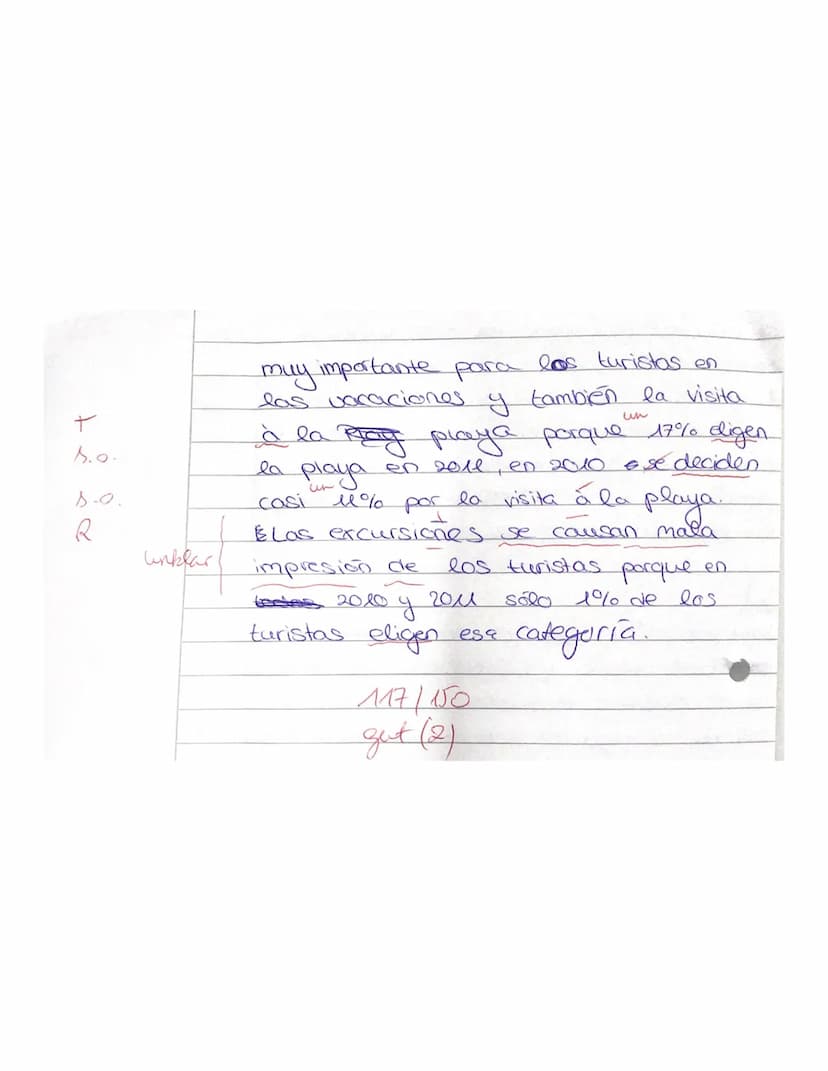 muy importante para los turistas en
las vacaciones y también la visita
+
un
à la playa porque 17% eligen
s.o.
la playa en 2011, en 2010 se deciden
un
s.o.
casi 11% por la visita á la playa.
R
Las excursiones se causan mala
unklar
impresión de los turistas porque en
2010 y 2011 sólo 1% de los
turistas eligen esa categoría.
117/150
gut (2)